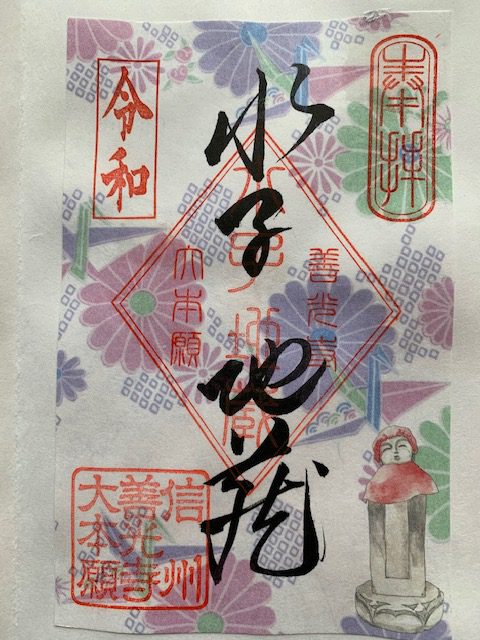 奉拝
水子地蔵
善光寺
大本願
令和
信州
善光寺
大本願